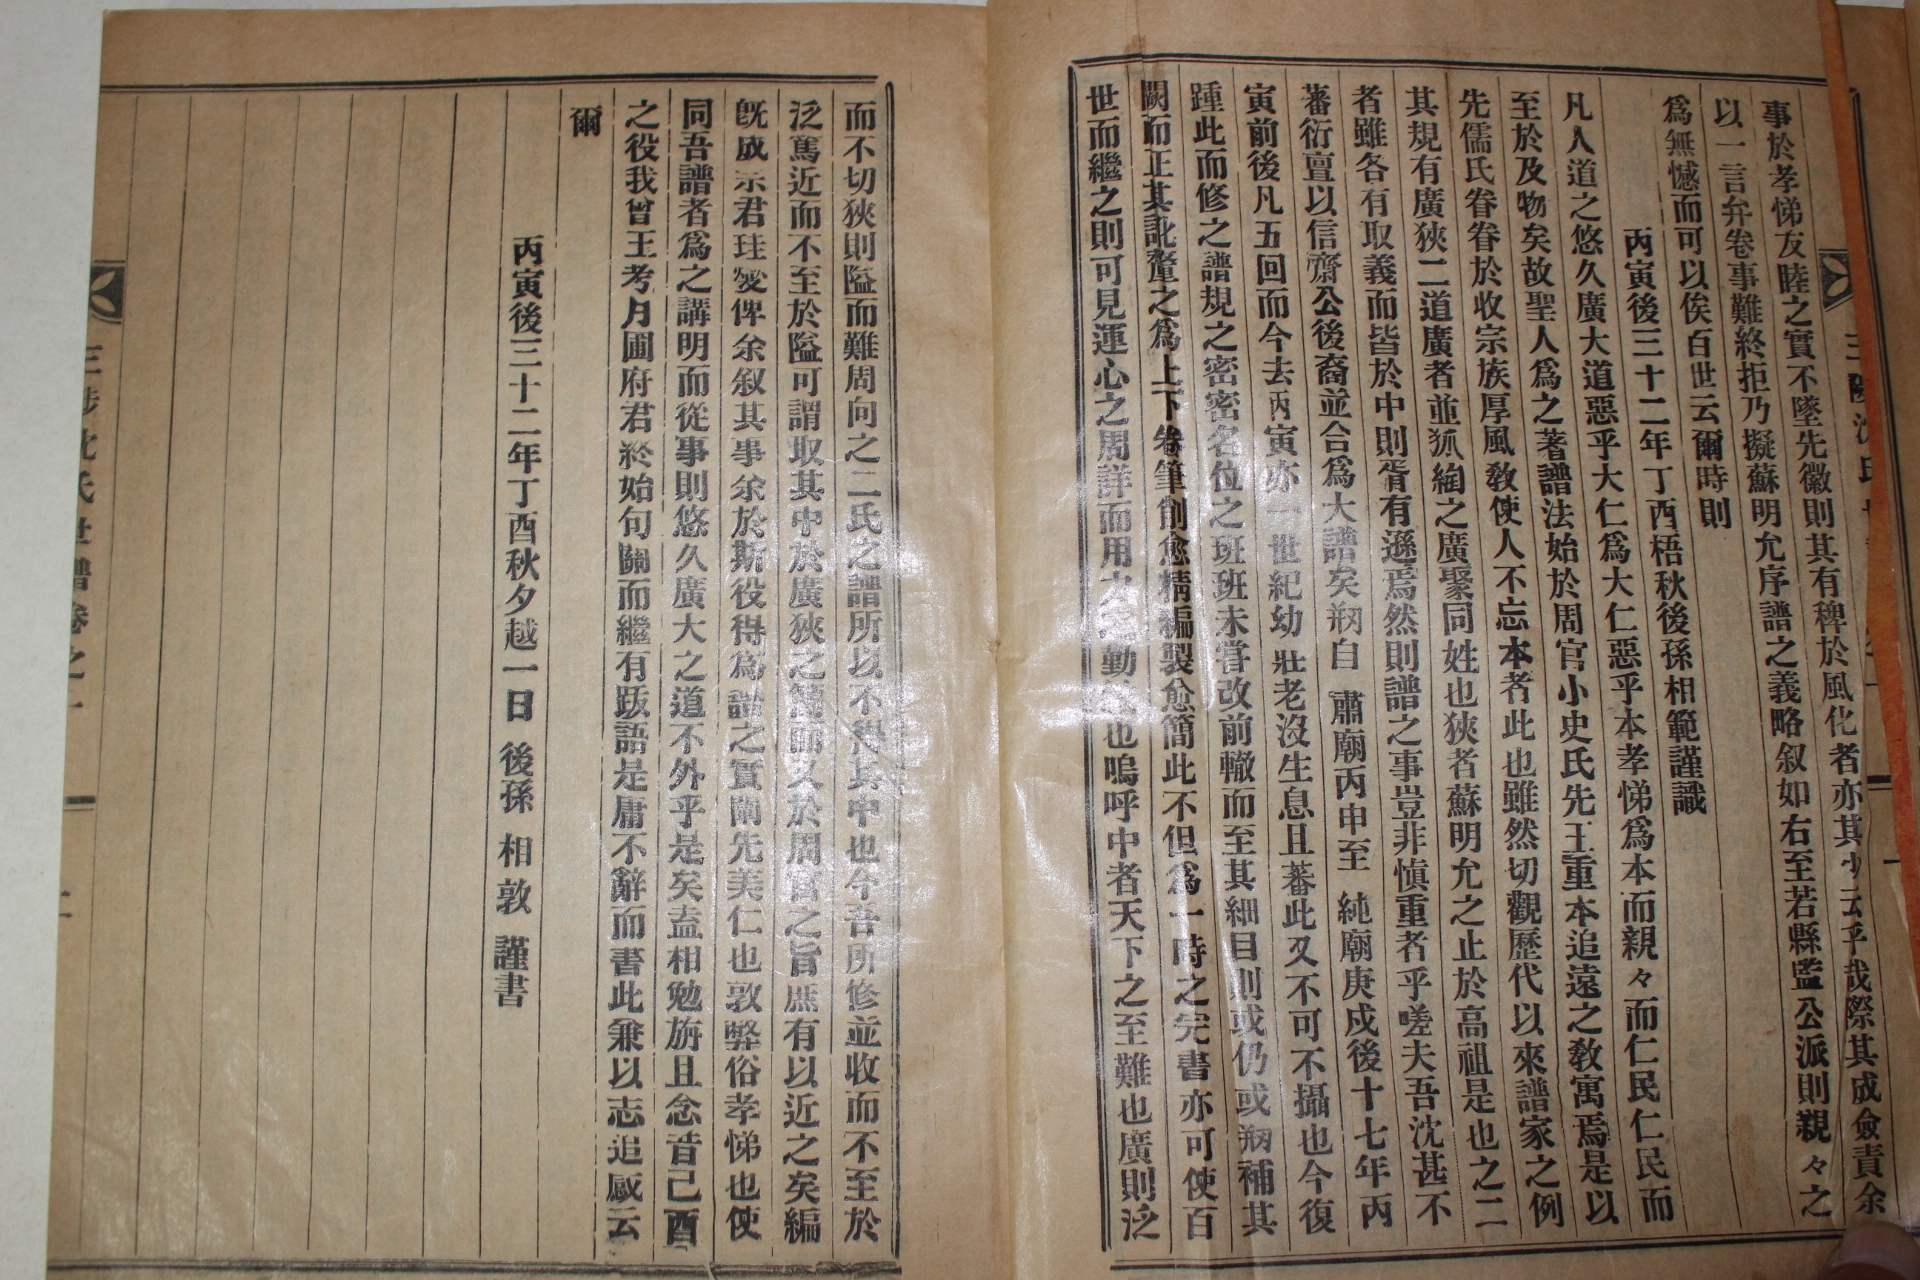 事於孝悌友睦之實不墜先徽則其有稗於風化者亦其少云乎哉際其成僉責余
以一言弁卷事難終拒乃擬蘇明允序譜之義略叙如右至若縣監公派則親々之
爲無憾而可以俟百世云爾時則
丙寅後三十二年丁酉梧秋後孫相範謹識
凡人道之悠久廣大道惡乎大仁爲大仁惡乎本孝悌爲本而親々而仁民仁民而
至於及物矣故聖人爲之著譜法始於周官小史氏先王重本追遠之敎寓焉是以
先儒氏眷眷於收宗族厚風敎使人不忘本者此也雖然切觀歷代以來譜家之例
其規有廣狹二道廣者並派絢之廣聚同姓也狹者蘇明允之止於高祖是也之二
者雖各有取義而皆於中則胥有遜焉然則譜之事豈非愼重者乎嗟夫吾沈甚不
蕃衍亶以信齋公後裔並合爲大譜矣刱自 肅廟丙申至 純廟庚戍後十七年丙
寅前後凡五回而今去丙寅亦一世紀幼壯老沒生息且蕃此又不可不攝也今復
踵此而修之譜規之密密名位之班班未甞改前轍而至其細目則或仍或刱補其
闕而正其訛釐之爲上下卷筆削愈精編製愈簡此不但爲一時之完書亦可使百
世而繼之則可見運心之周詳而用力之勤也嗚呼中者天下之至難也廣則泛
而不切狹則隘而難周向之二氏之譜所以不得其中也今吾所修並收而不至於
泛篤近而不至於隘可謂取其中於廣狹之間而又於周官之旨庶有以近之矣編
旣成宗君珪燮俾余叙其事余於斯役得爲譜之實闡先美仁也敦弊俗孝悌也使
同吾譜者爲之講明而從事則悠久廣大之道不外乎是矣盍相勉旃且念昔己酉
之役我曾王考月圃府君終始句關而繼有跋語是庸不辭而書此兼以志追感云
爾
丙寅後三十二年丁酉秋夕越一日 後孫 相敦 謹書
三陟沈氏世譜卷之一
二